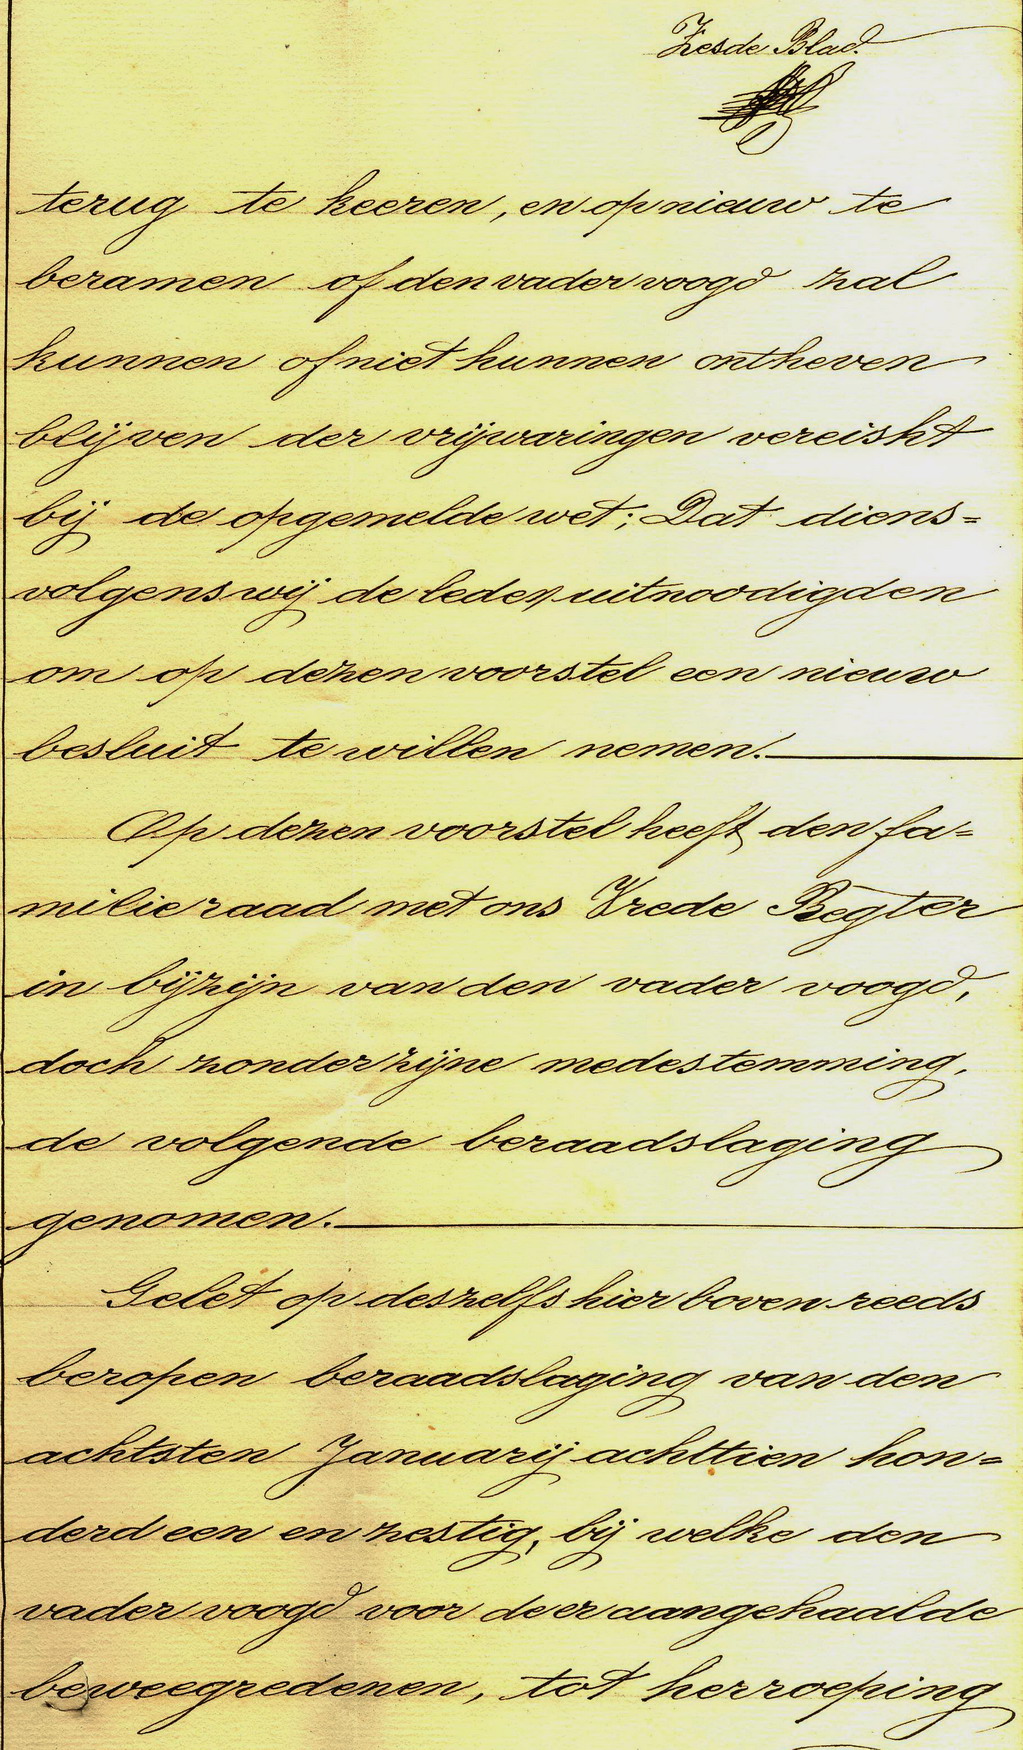 Zesde Blad.
terug te keeren, en op nieuw te
beramen of den vader voogd zal
kunnen of niet kunnen ontheven
blijven der vrijwaringen vereischt
bij de opgemelde wet; Dat diens=
volgens wij de leden uitnoodigden
om op dezen voorstel een nieuw
besluit te willen nemen.
Op dezen voorstel heeft den fa=
milieraad met ons Vrede Regter
in bijzijn van den vader voogd,
doch zonder zijne medestemming,
de volgende beraadslaging
genomen.
Gelet op deszelfs hier boven reeds
beropen beraadslaging van den
achtsten Januarij achttien hon=
derd een en zestig, bij welke den
vader voogd voor de er aangehaalde
beweegredenen, tot herroeping